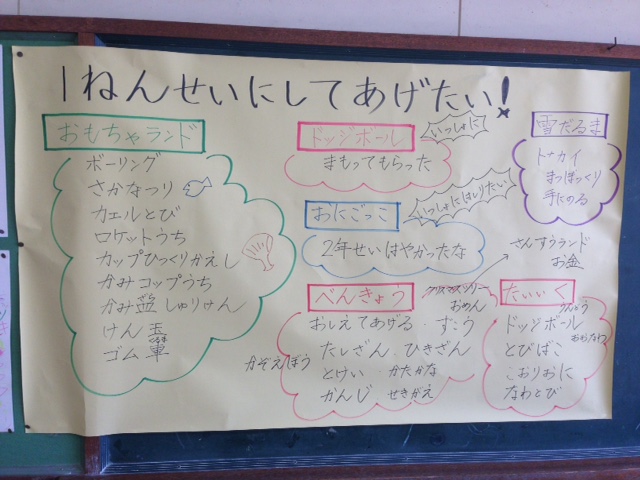 1ねんせいにしてあげたい!
おもちゃランド
ボーリング
さかなつり
カエルとび
ロケットうち
カップひっくりかえし
かみコップうち
かみ皿 しゅりけん
けん玉
ゴム車
ドッジボール
いっしょに
まもってもらった
おにごっこ
いっしょにはしりたい
2年せいはやかったな
雪だるま
トナカイ
まつぼっくり
手にのる
さんすうランド
お金
べんきょう
クリスマスツリー
おめん
おしえてあげる・ずこう
たしざん、ひきざん
かぞえぼう
とけい・かたかな
かんじ せきがえ
たいいく
ドッジボール
おおなわ
とびばこ
こおりおに
なわとび